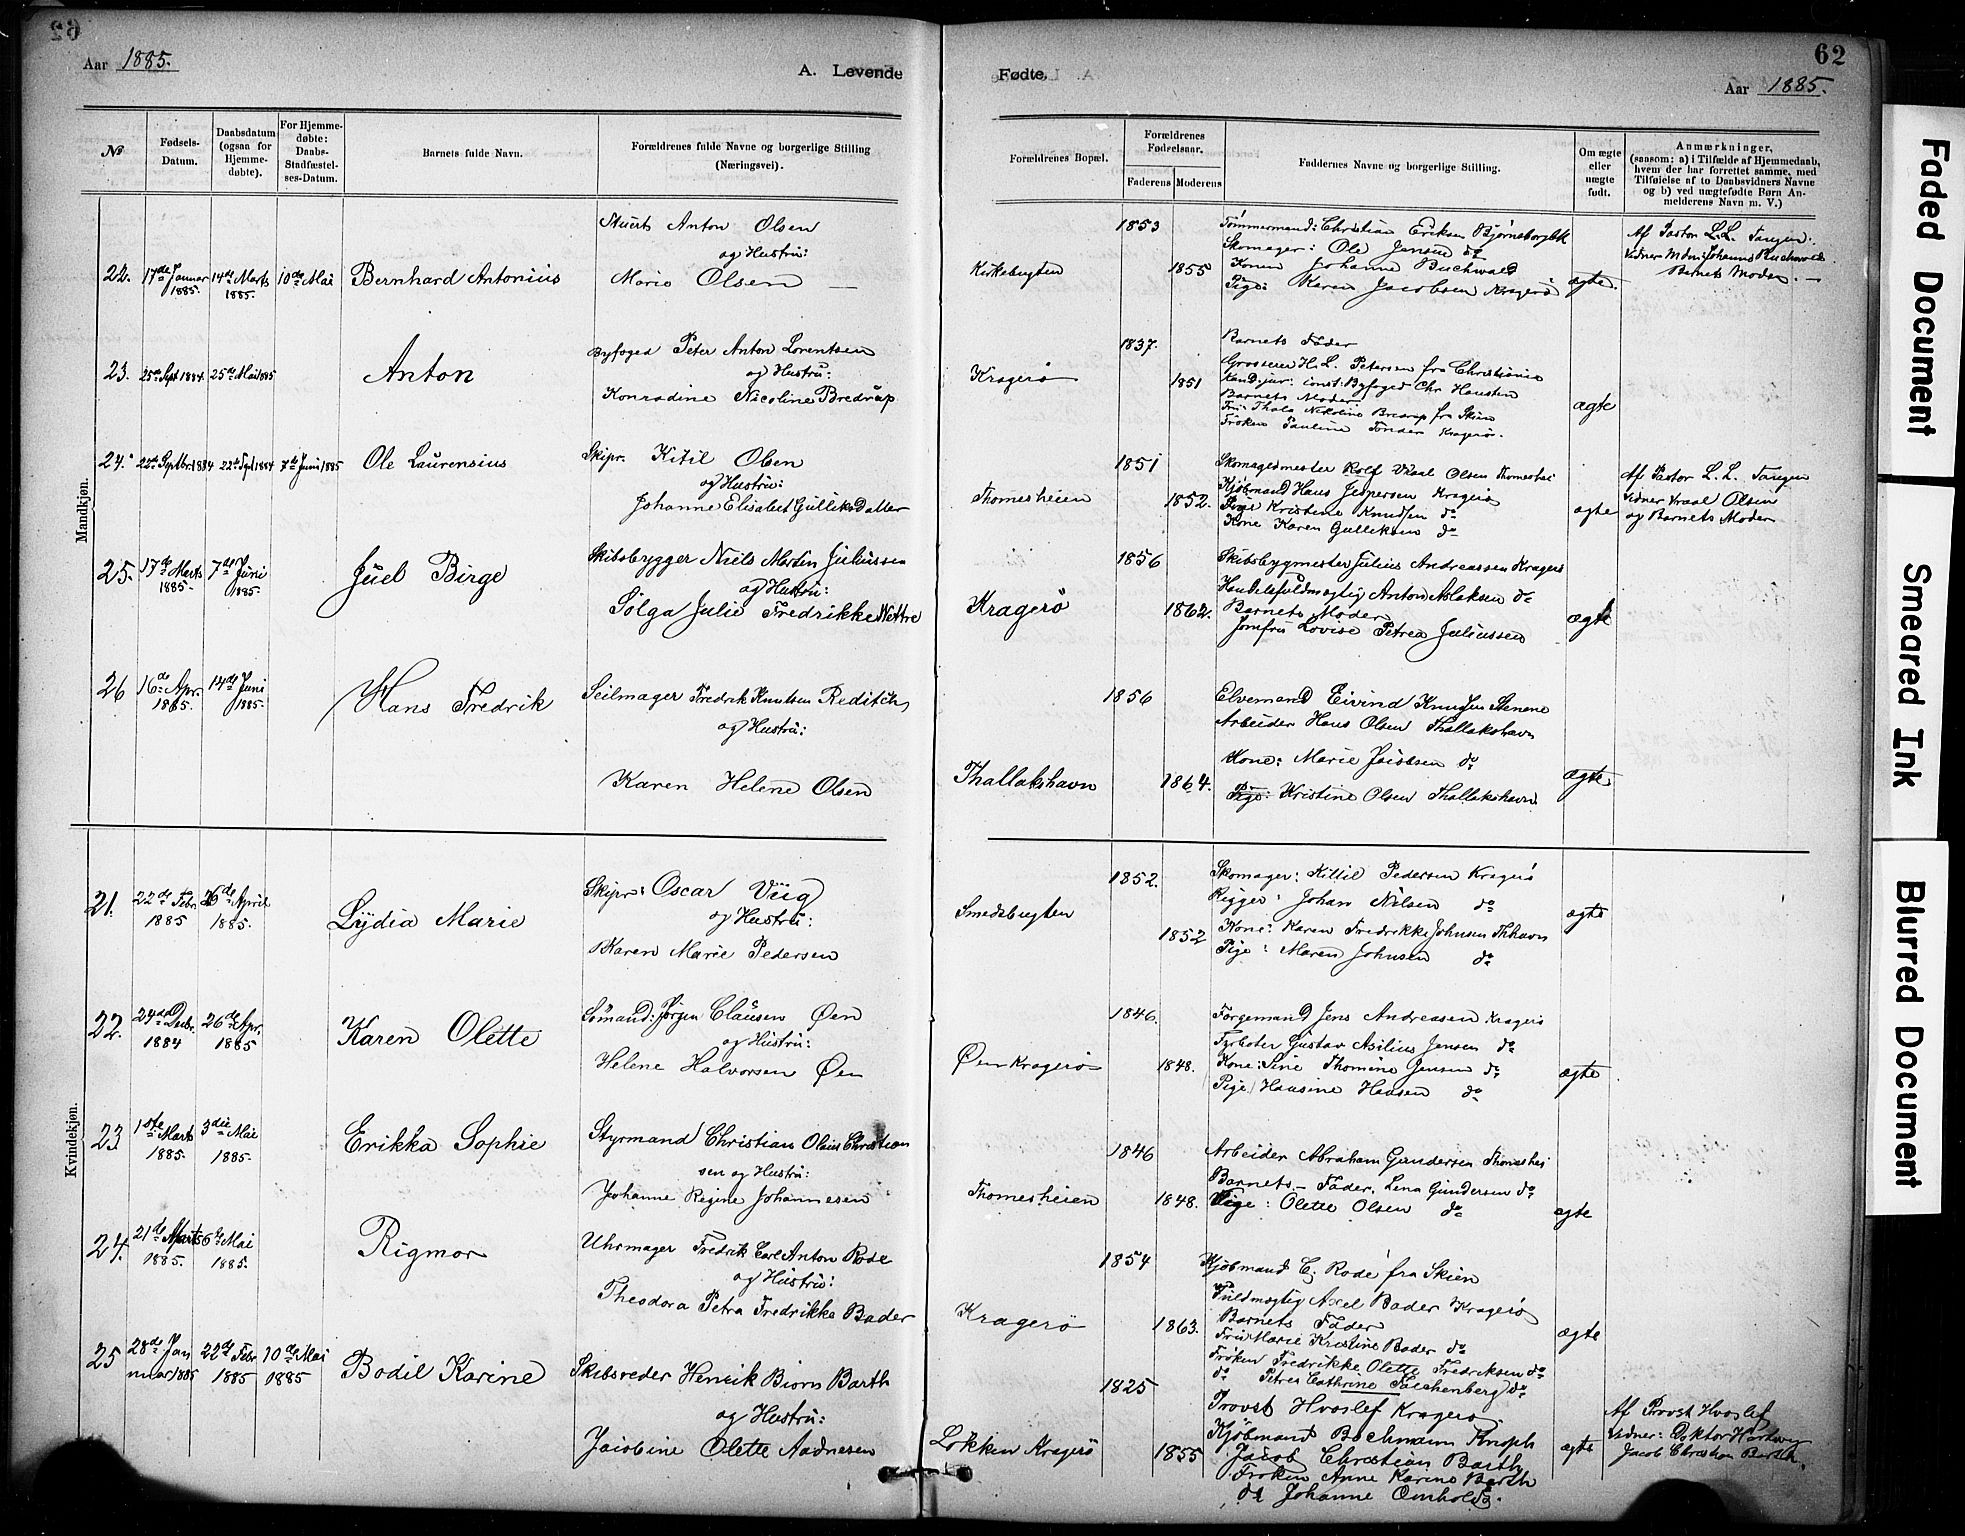 62
Aar 1885.
A. Levende
Fødte.
Aar 1885.
№
Fødsels-
Datum.
Daabsdatum
(ogsaa for
Hjemme-
døbte).
For Hjemme-
døbte:
Daabs-
Stadfæstel-
ses-Datum.
Barnets fulde Navn.
Forældrenes fulde Navne og borgerlige Stilling
(Næringsvei).
Forældrenes Bopæl.
Forældrenes
Fødselsaar.
Faderens
Moderens
Faddernes Navne og borgerlige Stilling.
Om ægte
eller
uægte
født.
Anmærkninger,
(saasom: a) i Tilfælde af Hjemmedaab,
hvem der har forrettet samme, med
Tilføielse af to Daabsvidners Navne
og b) ved uægtefødte Børn An-
melderens Navn m. V.)
Mandkjøn.
22.
17de Januar
1885.
14de Marts
1885.
10de Mai
Bernhard Antonius
Stuert Anton Olsen
og Hustru:
Marie Olsen —
Kirkebugten
1853
1855
Tømmermand: Christian Eriksen Bjørneborgbk
Skomager: Ole Jensen do
Konen Johanne Buchwald
Pige: Karen Jacobsen Kragerø
ægte.
Af Pastor L. L. Tangen.
Vidner Mdm: Johanne Buchwald
Barnets Moder. —
23.
25de Sept 1884.
25de Mai 1885
Anton
Byfoged Peter Anton Lorentsen
og Hustru:
Konradine Nicoline Bredrup
Kragerø
1837.
1851
Barnets Fader
Grosserer H. L. Petersen fra Christiania
Kand: jur: const: Byfoged Chr Hansten
Barnets Moder
Fru Thala Nikoline Bredrup fra Skien
Frøken Pauline Tønder Kragerø.
ægte
24.
22de Septbr. 1884
22de Sept 1884
7de Juni 1885
Ole Laurensius
Skipr. Kitil Olsen
og Hustru:
Johanne Elisabet Gulliks Datter
Thomesheien
1851
1852.
Skomagermester Rolf Vraal Olsen Thomeshei
Kjøbmand Hans Jespersen Kragerø
Pige Kristine Knudsen do
Kone Karen Gulliksen do
ægte
Af Pastor L. L. Tangen
Vidner Vraal Olsen
og Barnets Moder
25.
17de Marts
1885.
7de Juni
1885.
Juel Birge
Skibsbygger Niels Martin Juliussen
og Hustru:
Solga Julie Fredrikke Wettre
Kragerø
1856
1862.
Skibsbygmester Julius Andreassen Kragerø
Handelsfuldmægtig Anton Aslaksen do
Barnets Moder
Jomfru Lovise Petrea Juliussen
ægte
26
16de Apr.
1885.
14de Juni
1885.
Hans Fredrik
Seilmager Fredrik Knutsen Reditch
og Hustru:
Karen Helene Olsen
Thallakshavn
1856
1864.
Elvemand Eivind Knudsen Stenene
Arbeider Hans Olsen Thallakshavn
Kone: Marie Jacobsen do
Pige: Kristine Olsen Thallakshavn
ægte
Kvindekjøn.
21.
22de Febr.
1885
26de April
1885.
Lydia Marie
Skipr: Oscar Viig
og Hustru:
Karen Marie Pedersen
Smedsbugten
1852.
1852
Skomager: Kittil Pedersen Kragerø
Rigger: Johan Nilsen do
Kone: Karen Fredrikke Johnsen Thhavn
Pige: Maren Johnsen do
ægte
22.
24de Decbr.
1884
26de Apr.
1885
Karen Olette
Sømand: Jørgen Clausen Øen
og Hustru:
Helene Halvorsen Øen
Øen Kragerø
1846.
1848.
Færgemand Jens Andreasen Kragerø
Fyrbøter Gustav Asilius Jensen do
Kone: Sine Thomine Jensen do
Pige Hansine Hansen do
ægte
23
1ste Marts
1885.
3die Mai
1885.
Erikka Sophie
Styrmand Christian Olaus Christian
sen og Hustru:
Johanne Regine Johannesen
Thomesheien
1846
1848.
Arbeider Abraham Gundersen Thomeshei
Barnets Fader. Lena Gundersen do
Pige: Olette Olsen do
ægte
24.
21de Marts
1885.
6te Mai
1885.
Rigmor
Uhrmager Fredrik Carl Anton Rode
og Hustru:
Theodora Petra Fredrikke Bader
Kragerø
1854
1863.
Kjøbmand C. Rode fra Skien
Fuldmægtig Axel Bader Kragerø
Barnets Fader
Fru Marie Kristine Bader do
Frøken Fredrikke Olette Fredriksen do
do Petrea Cathrine Falchenberg do
ægte
25
28de Jan
nuar 1885
22de Febr
1885
10de Mai
1885
Bodil Karine
Skibsreder Henrik Biørn Barth
og Hustru:
Jacobine Olette Aadnesen
Løkken Kragerø
1825
1855
Provst Hvoslef Kragerø
Kjøbmand Bochmann Knoph
Jacob Christian Barth
Frøken Anne Karine Barth
do Johanne Omholt do.
ægte
Af Provst Hvoslef
Vidner: Doktor Hartwig
Jacob Christian Barth.
Faded Document
Smeared Ink
Blurred Document